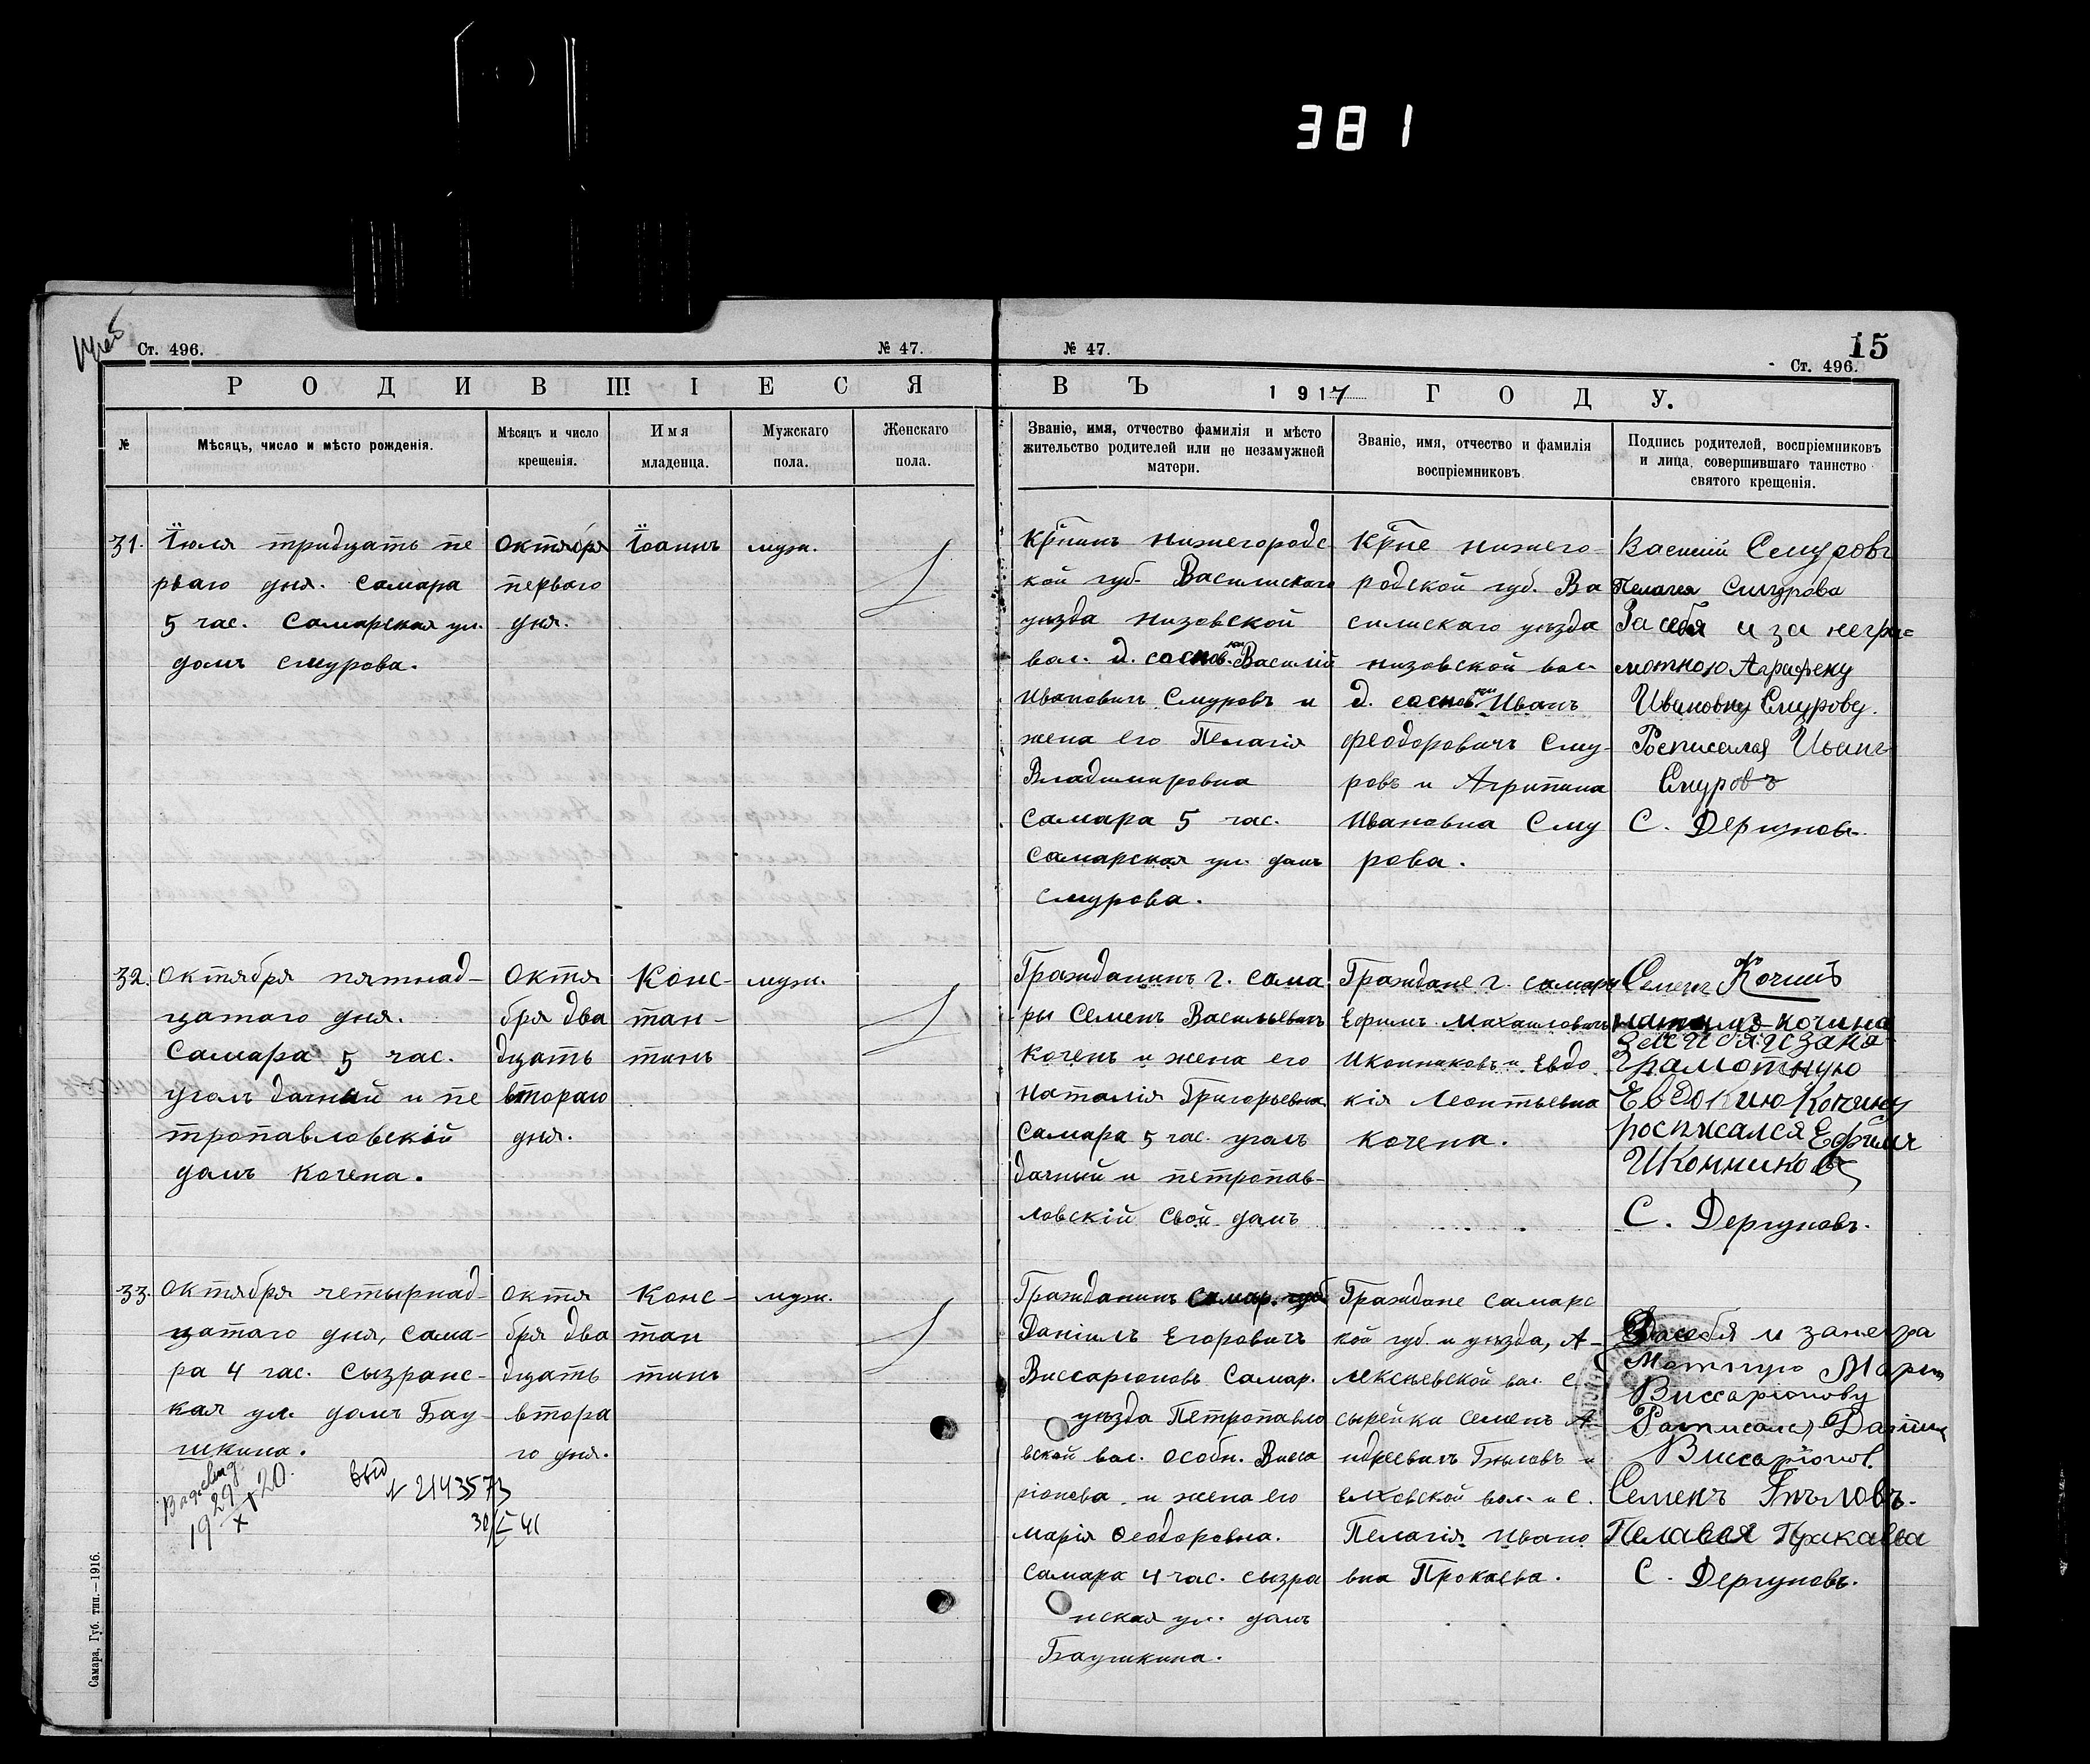 381
Ст. 496.
№ 47.
№ 47.
15
Ст. 496.
РОДИВШІЕСЯ
ВЪ 1917 ГОДУ.
№
Мѣсяцъ, число и мѣсто рожденія.
Мѣсяцъ и число
крещенія.
Имя
младенца.
Мужскаго
пола.
Женскаго
пола.
Званіе, имя, отчество фамилія и мѣсто
жительство родителей или не незамужней
матери.
Званіе, имя, отчество и фамилія
воспріемниковъ
Подпись родителей, воспріемниковъ
и лица, совершившаго таинство
святого крещенія.
31.
Іюля тридцать пе
рваго дня. Самара
5 час. Самарская ул.
домъ Смурова.
Октября
перваго
дня.
Іоаннъ
муж.
Кр̃нинъ Нижегородс
кой губ. Васильскаго
уѣзда Низовской
вол. д. соснов. Василій
Ивановичъ Смуровъ и
жена его Пелагія
Владимировна
Самара 5 час.
Самарская ул. домъ
Смурова.
Кр̃не Нижего-
родской губ. Ва
сильскаго уѣзда
Низовской вол.
д. соснов Иванъ
Феодоровичъ Сму-
ровъ и Агрипина
Ивановна Сму
рова.
Василій Смуровъ
Пелагея Смурова
За себя и за негра=
мотною Аграфену
Ивановну Смурову.
Росписался Иванъ
Смуровъ
С. Дергуновъ.
32.
Октября пятнад-
цатаго дня.
Самара 5 час.
уголъ Дачный и Пе
тропавловскій
домъ Кочена.
Октя
бря два
дцать
втораго
дня.
Конс-
тан-
тинъ
муж.
Гражданинъ г. Сама
ры Семенъ Васильевичъ
Коченъ и жена его
Наталія Григорьевна
Самара 5 час. уголъ
Дачный и Петропав-
ловскій свой домъ
Граждане г. Самары
Ефимъ Михаиловичъ
Иконниковъ и Евдо
кія Леонтьевна
Кочена.
Семенъ Кочинъ
Наталия Кочина
грамотную
Евдокию Кочину
росписался Ефимъ
Иконников
С. Дергуновъ.
33.
Октября четырнад-
цатаго дня, Сама-
ра 4 час. Сызранс-
кая ул. домъ Бау-
шкина.
Октя
бря два
дцать
втора
го дня.
Конс-
тан
тинъ
муж.
Гражданинъ Самар. губ
Даніилъ Егоровичъ
Виссаріоновъ Самар.
уѣзда Петропавло
вской вол. особн. Висса
ріонова и жена его
Марія Ѳеодоровна.
Самара 4 час. Сызра
нская ул. домъ
Баушкина.
Граждане Самарс
кой губ. и уѣзда, А-
лексѣевской вол. с.
сырейка Семенъ А-
ндреевичъ Гнѣловъ и
Елховской вол. и с.
Пелагія Ивано
вна Прокаева.
За себя и за негра
мотную Марию
Виссаріонову
Росписался Даніилъ
Виссаріонов.
Семенъ Гнѣловъ.
С. Дергуновъ.
29
1920.
X
выд
№ 2143573
41
Самара, Губ. тип.—1916.